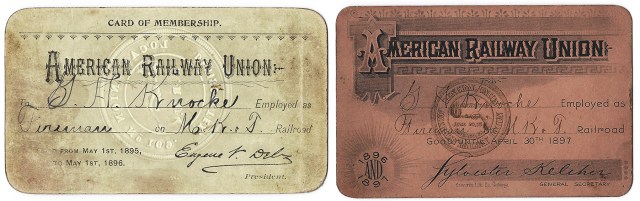 CARD OF MEMBERSHIP.
AMERICAN RAILWAY UNION
To G. H. Knocke Employed as
Fireman on M. K. & T. Railroad
FROM MAY 1ST, 1895,
TO MAY 1ST, 1896.
Eugene V. Debs
President.
AMERICAN RAILWAY UNION
Employed as
Fireman M K & T Railroad
GOOD UNTIL APRIL 30TH 1897.
1896
AND
1897
Sylvester Keliher
GENERAL SECRETARY